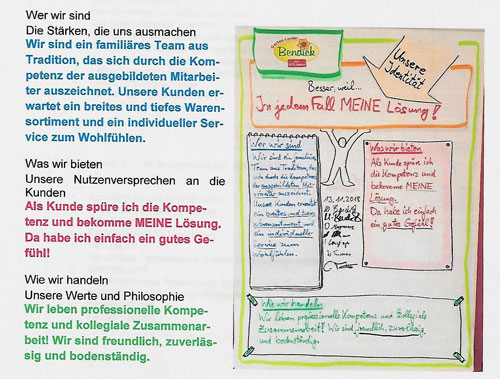 Wer wir sind
Die Stärken, die uns ausmachen
Wir sind ein familiäres Team aus
Tradition, das sich durch die Kom-
petenz der ausgebildeten Mitarbei-
ter auszeichnet. Unsere Kunden er-
wartet ein breites und tiefes Waren-
sortiment und ein individueller Ser-
vice zum Wohlfühlen.
Was wir bieten
Unsere Nutzenversprechen an die
Kunden
Als Kunde spüre ich die Kompe-
tenz und bekomme MEINE Lösung.
Da habe ich einfach ein gutes Ge-
fühl!
Wie wir handeln
Unsere Werte und Philosophie
Wir leben professionelle Kompe-
tenz und kollegiale Zusammenar-
beit! Wir sind freundlich, zuverläs-
sig und bodenständig.
Bendick
Unsere
Identität
Besser, weil...
In jedem Fall MEINE Lösung!
Wer wir sind
Wir sind ein familiäres
Team aus Tradition, das
sich durch die Kompetenz
der ausgebildeten Mit-
arbeiter auszeichnet.
Unsere Kunden erwartet
ein breites und tiefes
Warensortiment und
ein individueller
Service zum
Wohlfühlen.
13.11.2018
Was wir bieten
Als Kunde spüre ich
die Kompetenz und
bekomme MEINE
Lösung.
Da habe ich einfach
ein gutes Gefühl!
Wie wir handeln
Wir leben professionelle Kompetenz und kollegiale
Zusammenarbeit! Wir sind freundlich, zuverlässig
und bodenständig.